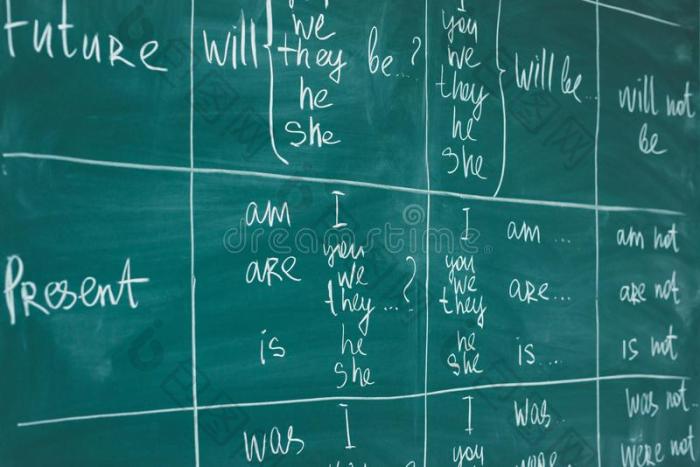 we
they
he
she
Future
will
be...?
I
you
we
they
he
she
will be...
will not
be
Present
am I
are you
we
they...?
is he
she
I am ...
you
we
they
are...
he
she
is...
am not
are not
is not
was I
I was..
you
was not..
were not
dreamstime